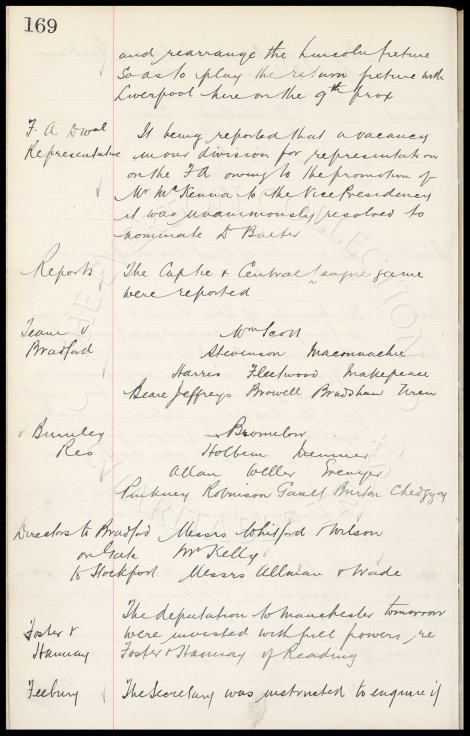 169
and rearrange the Lincoln fixture
So as to play the return fixture with
Liverpool here on the 9th prox
F. A. Divsl
Representative
It being reported that a vacancy
in our division for representation
on the FA owing to the promotion of
Mr McKenna to the Vice Presidency
it was unanimously resolved to
nominate D Baxter
Reports
The Cuptie & Central League game
were reported
Team v
Bradford
Wm Scott
Stevenson Maconnachie
Harris Fleetwood Makepeace
Beare Jeffreys Browell Bradshaw Wren
v Burnley
Res
Bromilow
Holbem Meunier
Allan Weller Grenyer
Pinkney Robinson Gault Burton Chedgzoy
Directors to Bradford
Messrs Whitford & Wilson
on Gate
Mr Kelly
to Stockport
Messrs Allman & Wade
Foster &
Hannay
The deputation to Manchester tomorrow
were invested with full powers re
Foster & Hannay of Reading
The Secretary was instructed to enquire if